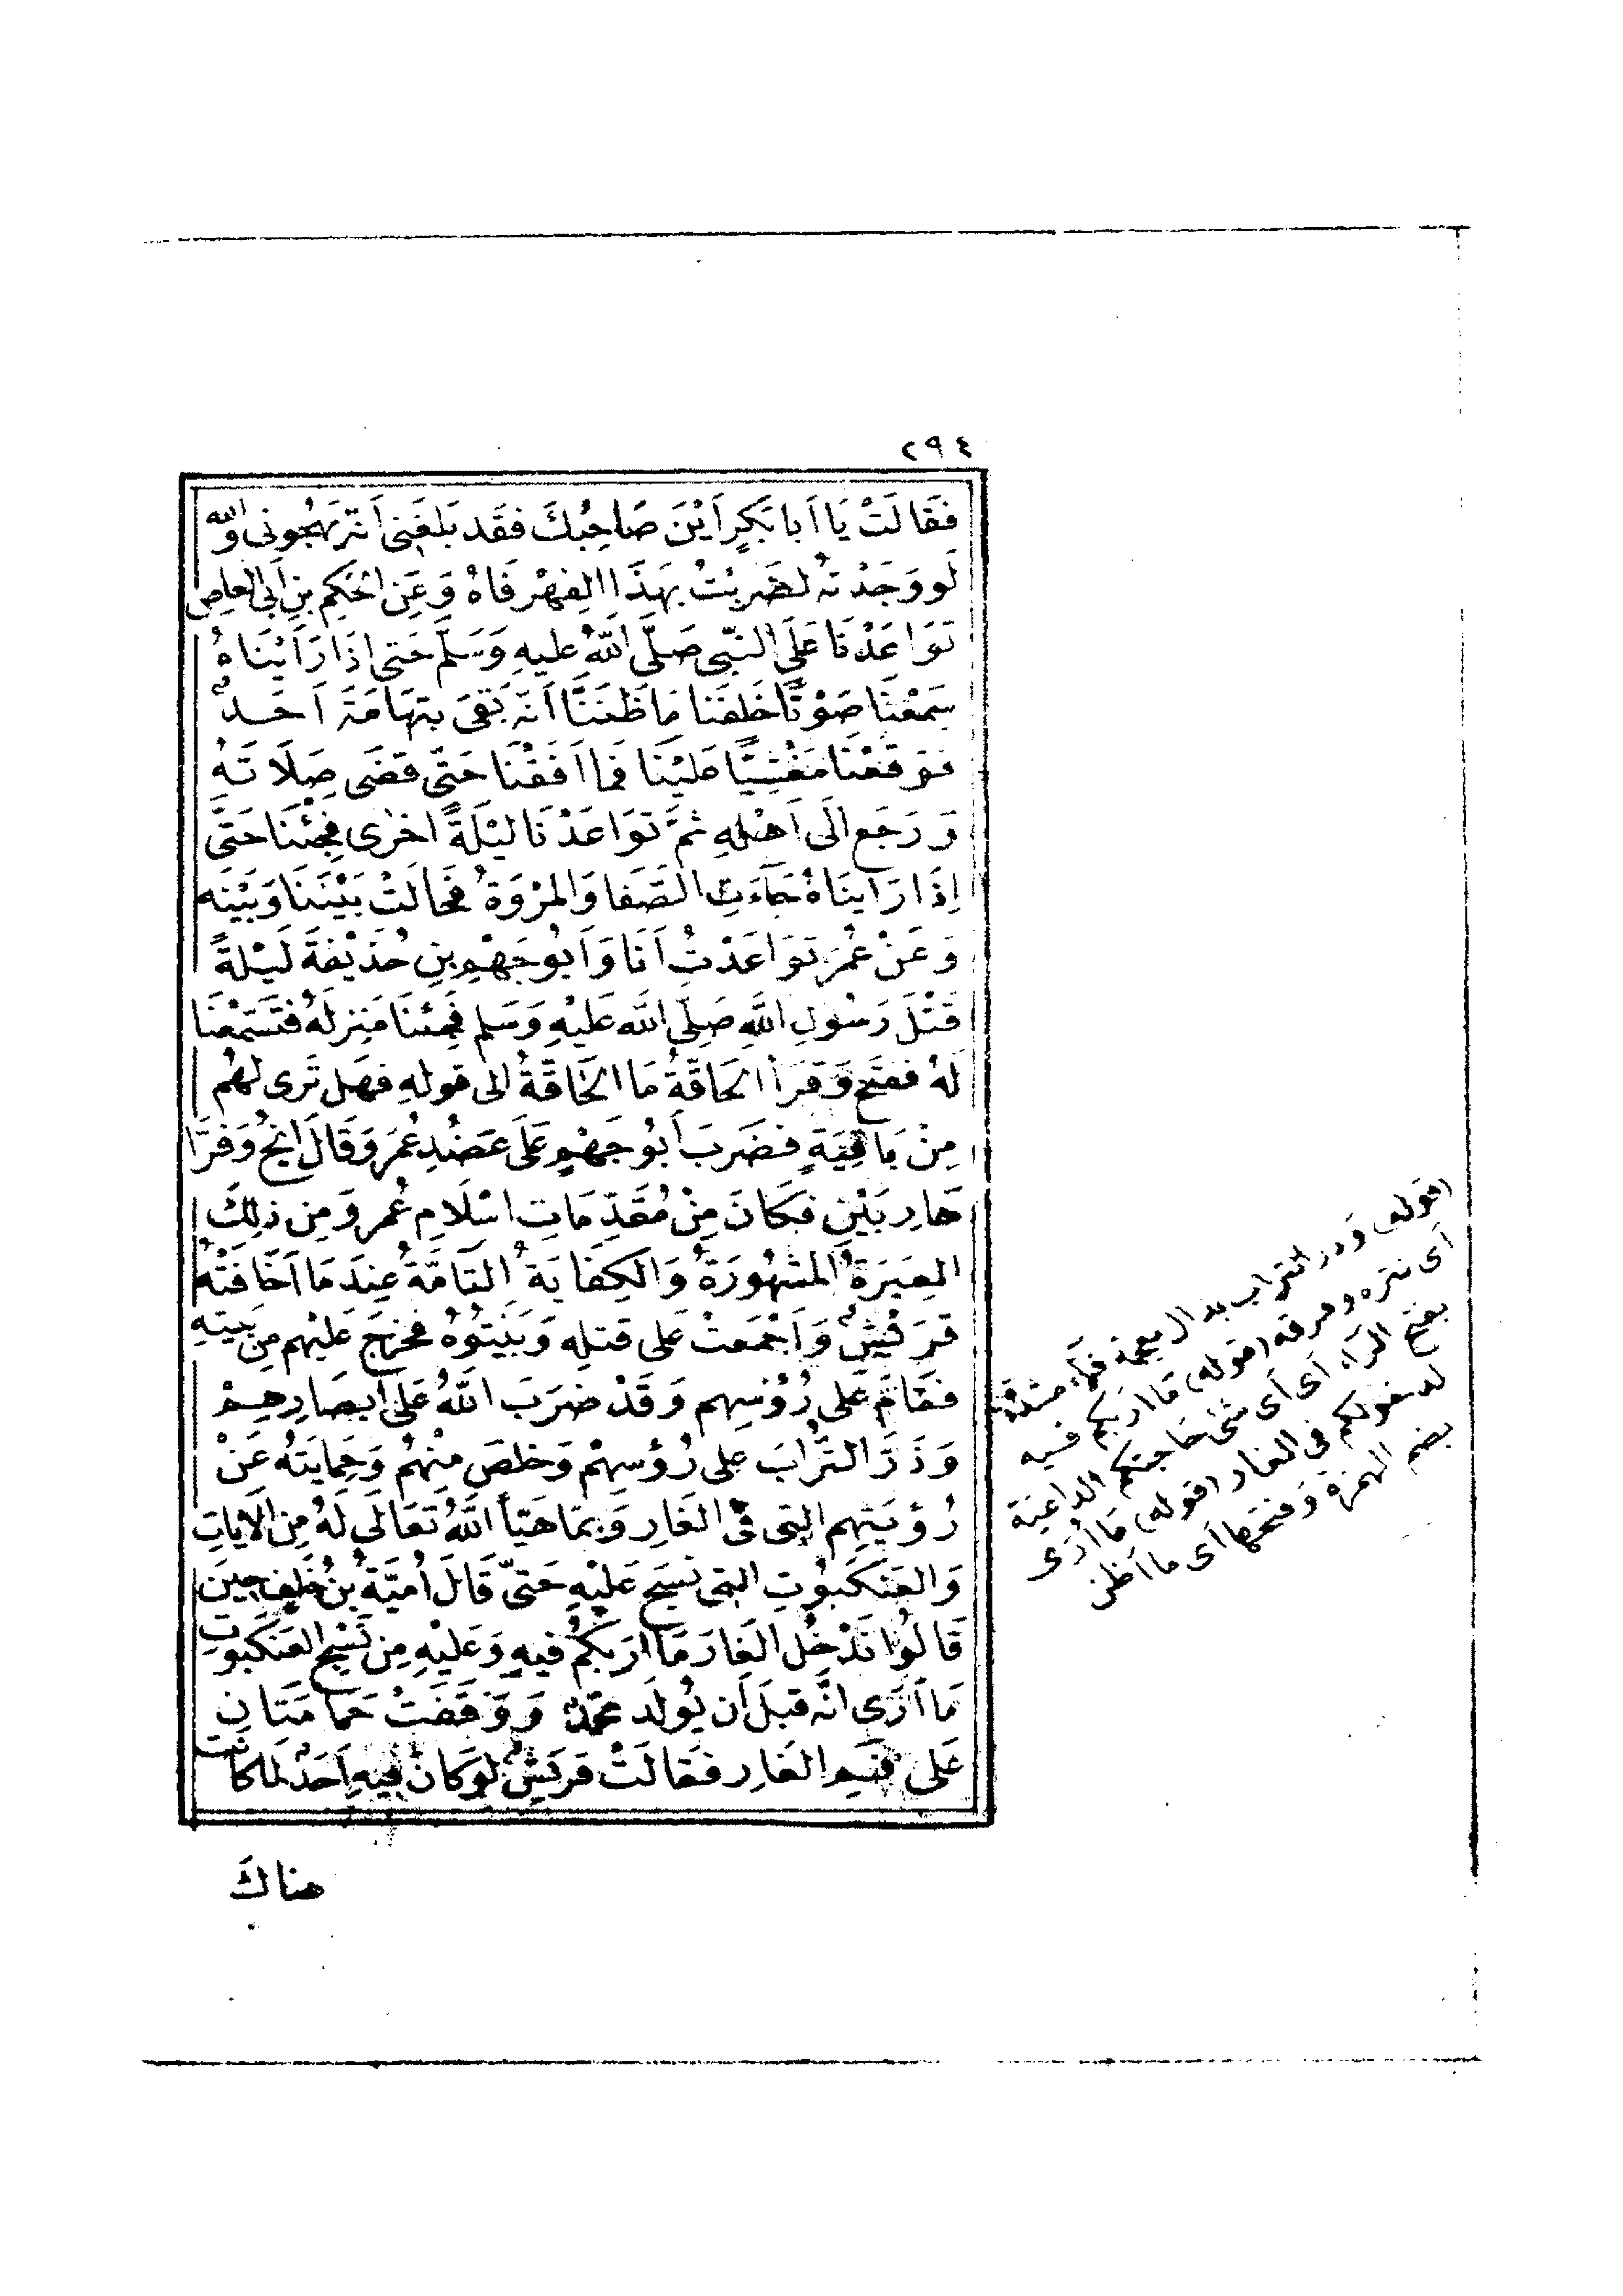 ٢٩٤
فَقَالَتْ يَا أَبا بَكْرٍ أَيْنَ صَاحِبُكَ فَقَد بَلَغَنِى أَنَّه يَهْجُونى وَاللّٰه
لَو وَجَدْتُهُ لَضَرَبْتُ بِهَذَا الفِهْرِ فَاهُ وَعَنِ الحَكَمِ بنِ أَبِى العاصِ
تَوَاعَدْنَا عَلَى النَّبِى صَلَّى اللّٰهُ عليهِ وَسَلَّمَ حَتى اِذَا رَاَيْنَاهُ
سَمِعْنَا صَوْتًا خَلفَنا مَا ظَنَنَّا اَنَّه بَقِىَ بِتِهَامَةَ اَحَدٌ
فَوَقَعْنَا مَغْشِيًّا عَلَيْنَا فَما اَفَقْنَا حَتّى قَضَى صَلَاتَهُ
وَرَجَع اِلَى اَهْلِهِ ثُمَّ تَوَاعَدْنَا لَيْلَةً اُخْرٰى فَجِئْنَا حَتَّى
اِذَا رَاَينَاهُ جَآءَتِ الصَّفا وَالمَرْوَةُ فَحَالَتْ بَيْنَنَا وَبَيْنَه
وَعَنْ عُمَرَ تَوَاعَدْتُ اَنَا وَاَبُو جَهْمِ بنِ حُذَيْفَةَ لَيْلَةً
قَتْلَ رَسُولِ اللّٰهِ صَلّى اللّٰه عَلَيْهِ وَسَلم فَجِئنَا مَنزِلَهُ فَتَسَمَّعْنَا
لَهُ فَفتَحَ وَقَرَأَ الحَاقَّةُ مَا الحَاقَّةُ اِلى قولهِ فَهَل تَرى لهُم
مِنْ بَاقِيَةٍ فَضَرَبَ أَبُو جَهْمٍ عَلَى عَضُدِ عُمَرَ وَقَالَ انْجُ وَفَرَّا
هَارِبَيْنِ فَكَانَ مِنْ مُقَدِّمَاتِ اسْلَامِ عُمَر وَمِن ذلِكَ
العِبَرَةُ المَشْهُورَةُ وَالكِفَايَةُ التَّامَّةُ عِندَ مَا اَخَافَتْهُ
قُرَيْشٌ وَاَجْمَعَتْ عَلى قَتلِه وَبَيَّتُوهُ فَخَرَجَ عَلَيْهم مِن بَيتِهِ
فَقَامَ عَلى رُؤُسِهِم وَقَدْ ضَرَبَ اللّٰهُ عَلى اَبصَارِهِمْ
وَذَرَّ التُّرَابَ على رُؤسِهِمْ وَخَلصَ مِنْهُم وَحِمايَتُهُ عَنْ
رُؤيَتِهِم التى فى الغَارِ وَبِمَا هَيَّأَ اللّٰهُ تَعَالَى لَهُ مِن الآيَاتِ
وَالعَنكَبُوتِ التى نَسَجَ عَلَيْهِ حَتّى قَالَ اُمَيَّةُ بنُ خَلَفٍ حِينَ
قَالُوا نَدْخُل الغَارَ مَا اَرَبُكُم فيهِ وَعَلَيْهِ مِن نَسْجِ العَنكَبُوتِ
مَا اُرَى اَنَّه قَبلَ اَن يُولَدَ مُحَمَّدٌ وَوَقَفَتْ حَمامَتَانِ
عَلى فَمِ الغَارِ فَقَالَتْ قُرَيشٌ لَو كَانَ فيهِ اَحَدٌ لَما كانَت
هناكَ
(قوله) وَذر التراب بذال معجمة فراء مشددة
اى نثره وفرقه (قوله) مَا اربكم فيه
بفتح الرآء اى اى شئ حَاجتكم الداعية
لدخولكم فى الغار (قوله) مَا اُرَى
بضم الهمزة وَفتحها اى ما اظن